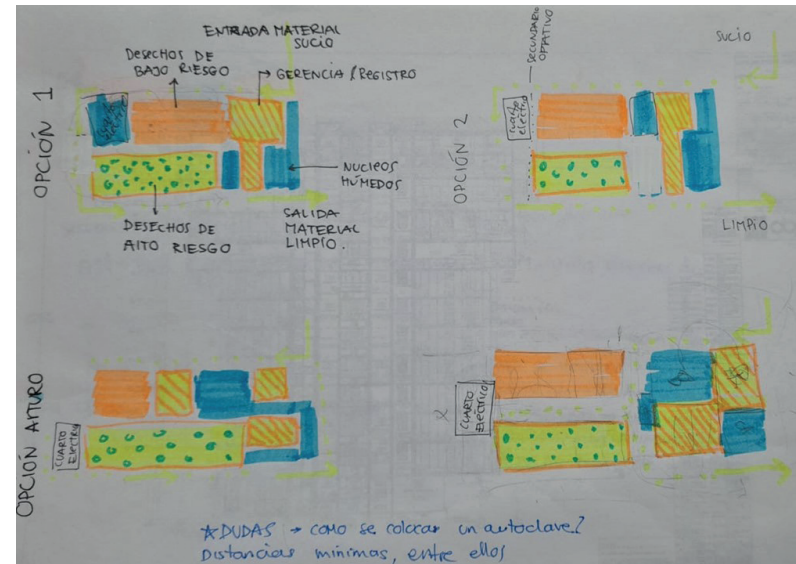 ENTRADA MATERIAL
SUCIO
DESECHOS DE
BAJO RIESGO
GERENCIA / REGISTRO
OPCIÓN 1
NUCLEOS
HÚMEDOS
DESECHOS DE
ALTO RIESGO
SALIDA
MATERIAL
LIMPIO.
SECUNDARIO
OPTATIVO
SUCIO
cuarto
electrico
OPCIÓN 2
LIMPIO
OPCIÓN ARTURO
CUARTO
ELECTRICO
CUARTO
Electrico
DUDAS → como se colocar un autoclave?
Distancias minimas, entre ellos